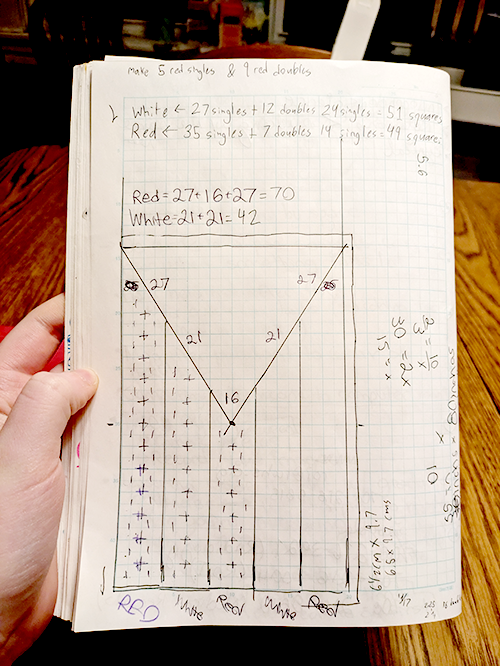 make 5 red singles & 9 red doubles
White ← 27 singles + 12 doubles 24 singles = 51 squares
Red ← 35 singles + 7 doubles 14 singles = 49 square
56
Red = 27+16+27=70
White=21+21=42
27
27
21
21
16
2/3 = 10/x
30 = 2x
15 = x
x
10
6.5 x 9.7 cms
RED
White
Red
White
Red